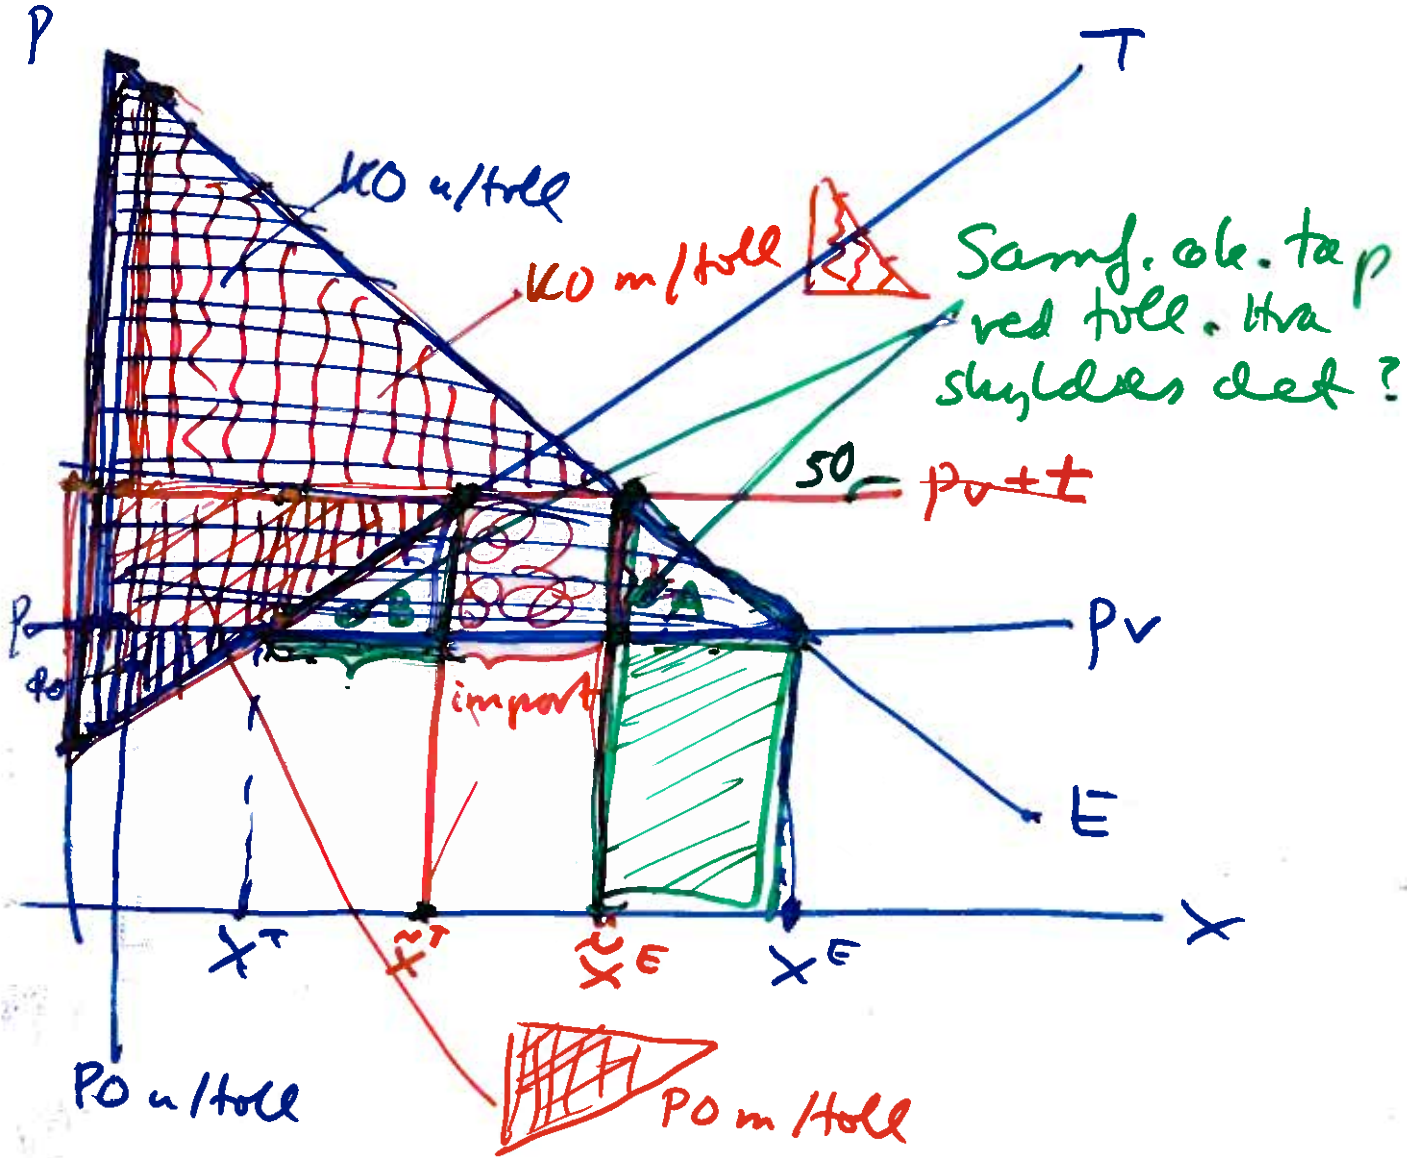 P
T
KO u/toll
KO m/toll
Samf. øk. tap
ved toll. Hva
skyldes det?
50
pv+t
B
A
P
40
Pv
import
E
X^T
x̃^T
x̃^E
X^E
X
PO u/toll
PO m/toll